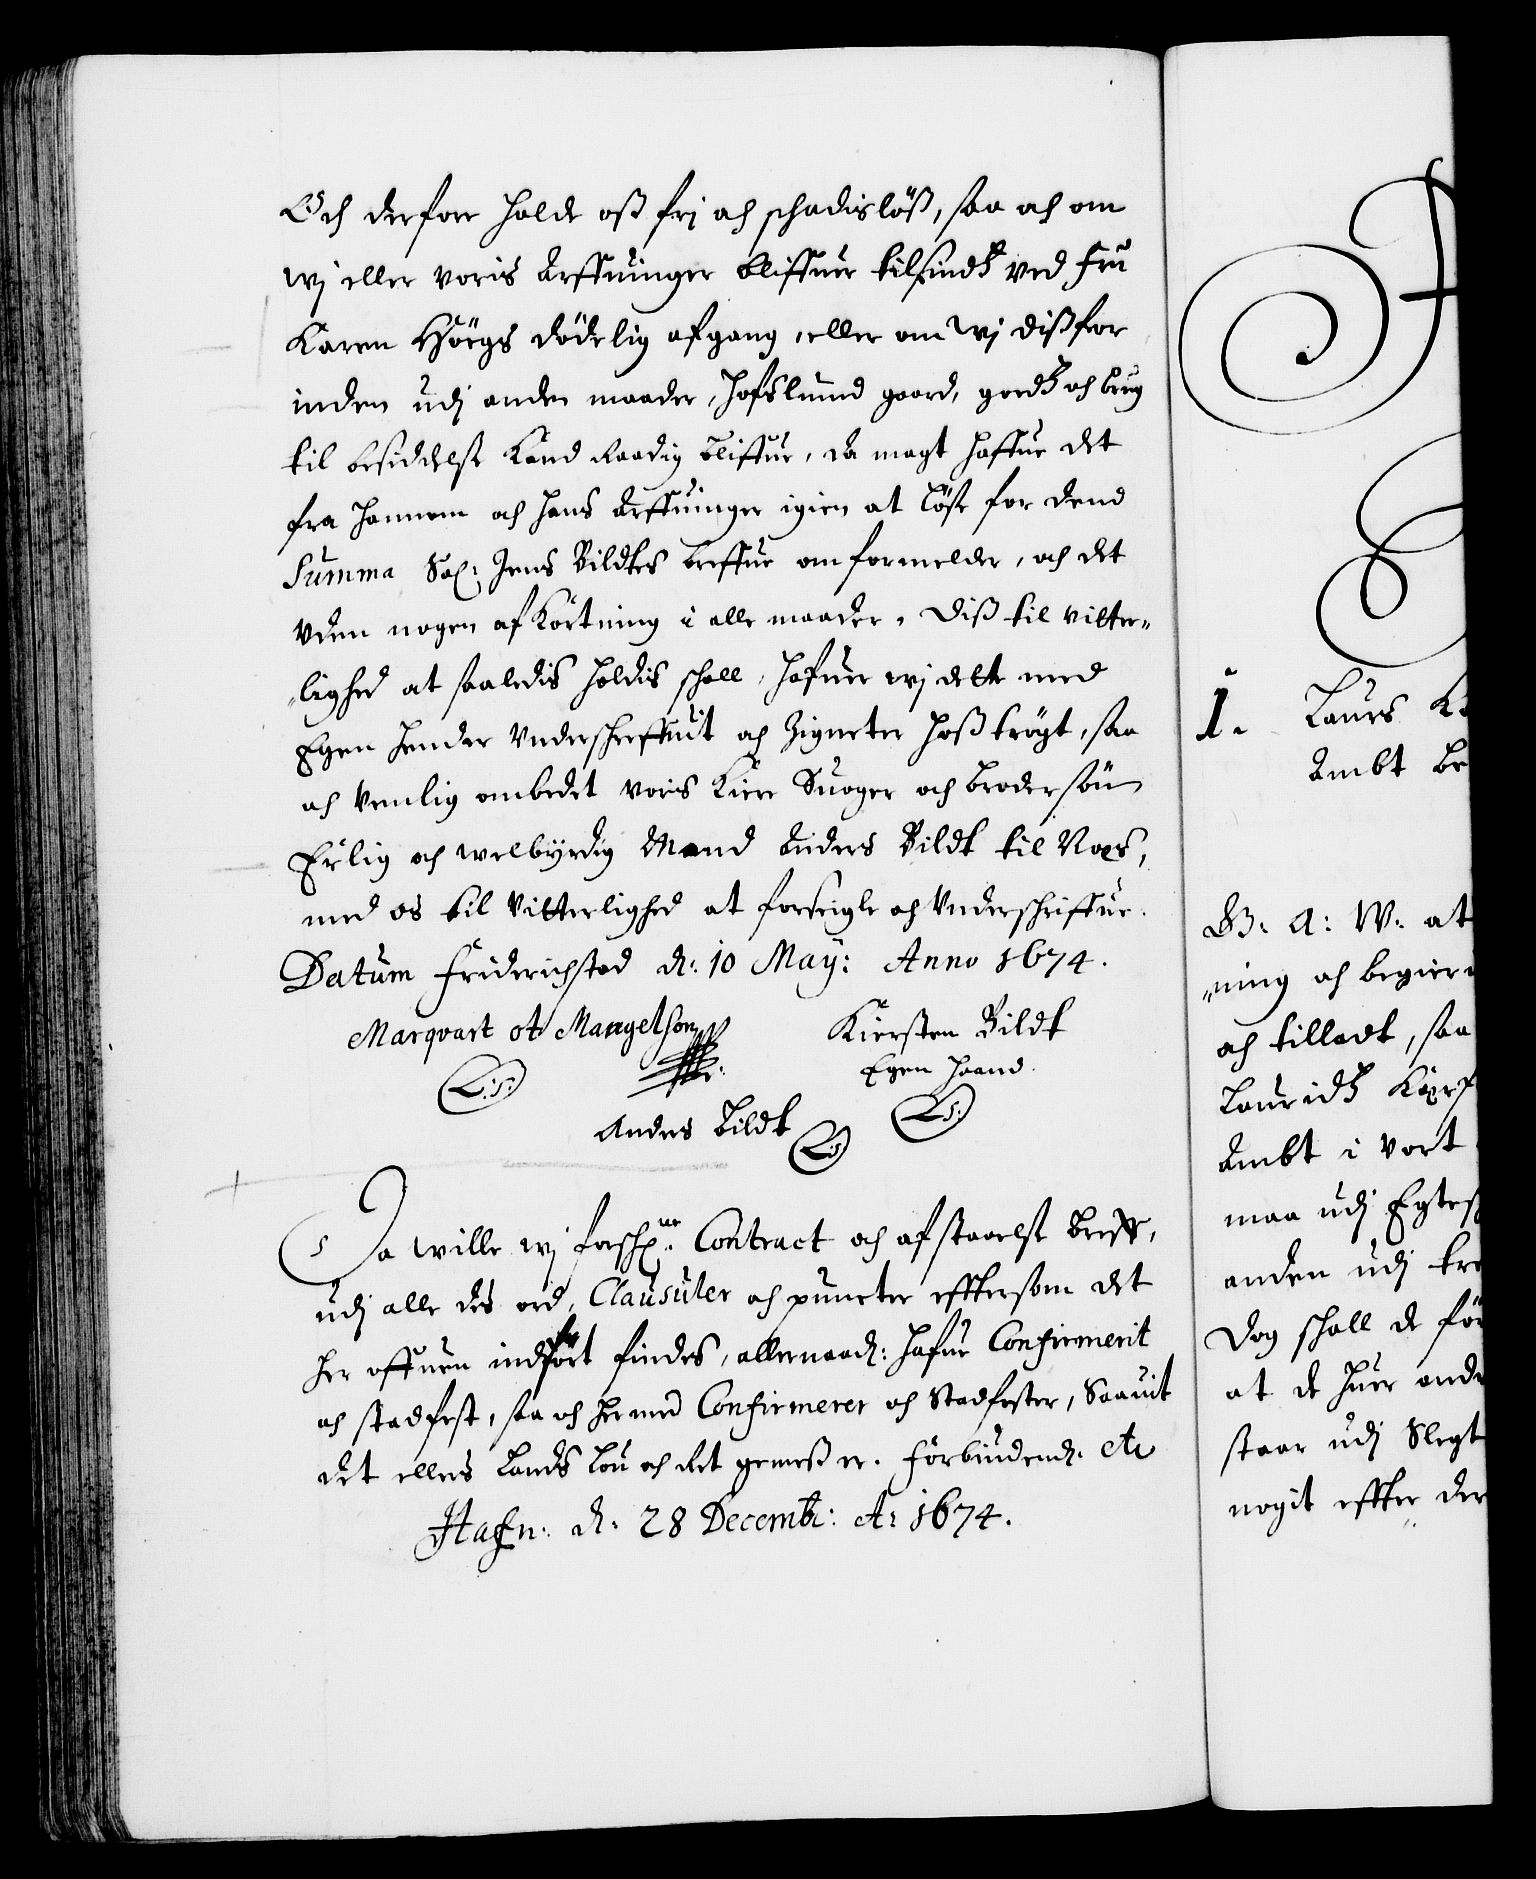 Och derfore holde oß frj och schadisløß, saa och om
wj eller voris Arffuinger bliffuer tilsindtz ved Fru
Karen Høegs dødelig afgang, eller om wj dißfor
inden udj anden maader, Hofslund gaard, godtz och brug
til besiddelse kand raadig bliffue, da magt haffue det
fra hannem och hans Arffuinger igien at løse for dend
Summa Sal: Jens Bildtes breffue omformelder, och det
vden nogen afkortning i alle maader. Diß til vitter„
„lighed at saaledis holdis schall, hafuer wj dette med
Egen hender vnderschreffuit och Zigneter hoß trögt, saa
och venlig ombedet voris kiere Suoger och brodersøn
Erlig och welbyrdig Mand Anders Bildt til Næs,
med os til vitterlighed at forseigle och vnderschriffue.
Datum Friderichstad d: 10 May: Anno 1674.
Marqvart
Kiersten Bildt
Egen haand.
L:S:
Anders Bildt
L:S:
L:S:
Da wille wj forsch:ne Contract och afstaaelse breff,
udj alle des ord, Clausuler och puncter efftersom det
her offuen indført findes, allernaad: hafue Confirmerit
och stadfest, saa och hermed Confirmerer och Stadfester, Saauit
det ellers Lands Lou och Ret gemeß er. Forbindend: etc
Hafn: d: 28 Decemb: A: 1674.
1. Laurs
Ambt be
G: A: W: at
„ning och begier
och tilladt, saa
Lauridtz
Ambt i vort
maa udj Egtesch
anden udj tre
Dog schall de før
at de huer ande
staar udj Slegt
nogit effter der